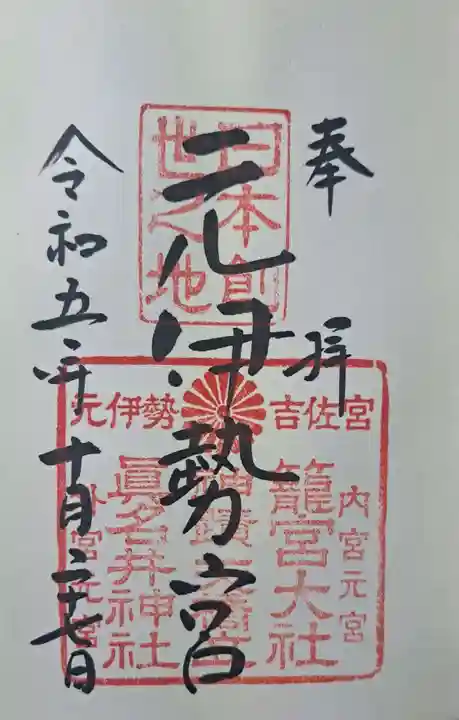 奉拝
元伊勢宮
令和五年十月二十七日
日本創
世之地
元伊勢
吉佐宮
内宮元宮
籠宮大社
眞名井神社
外宮元宮